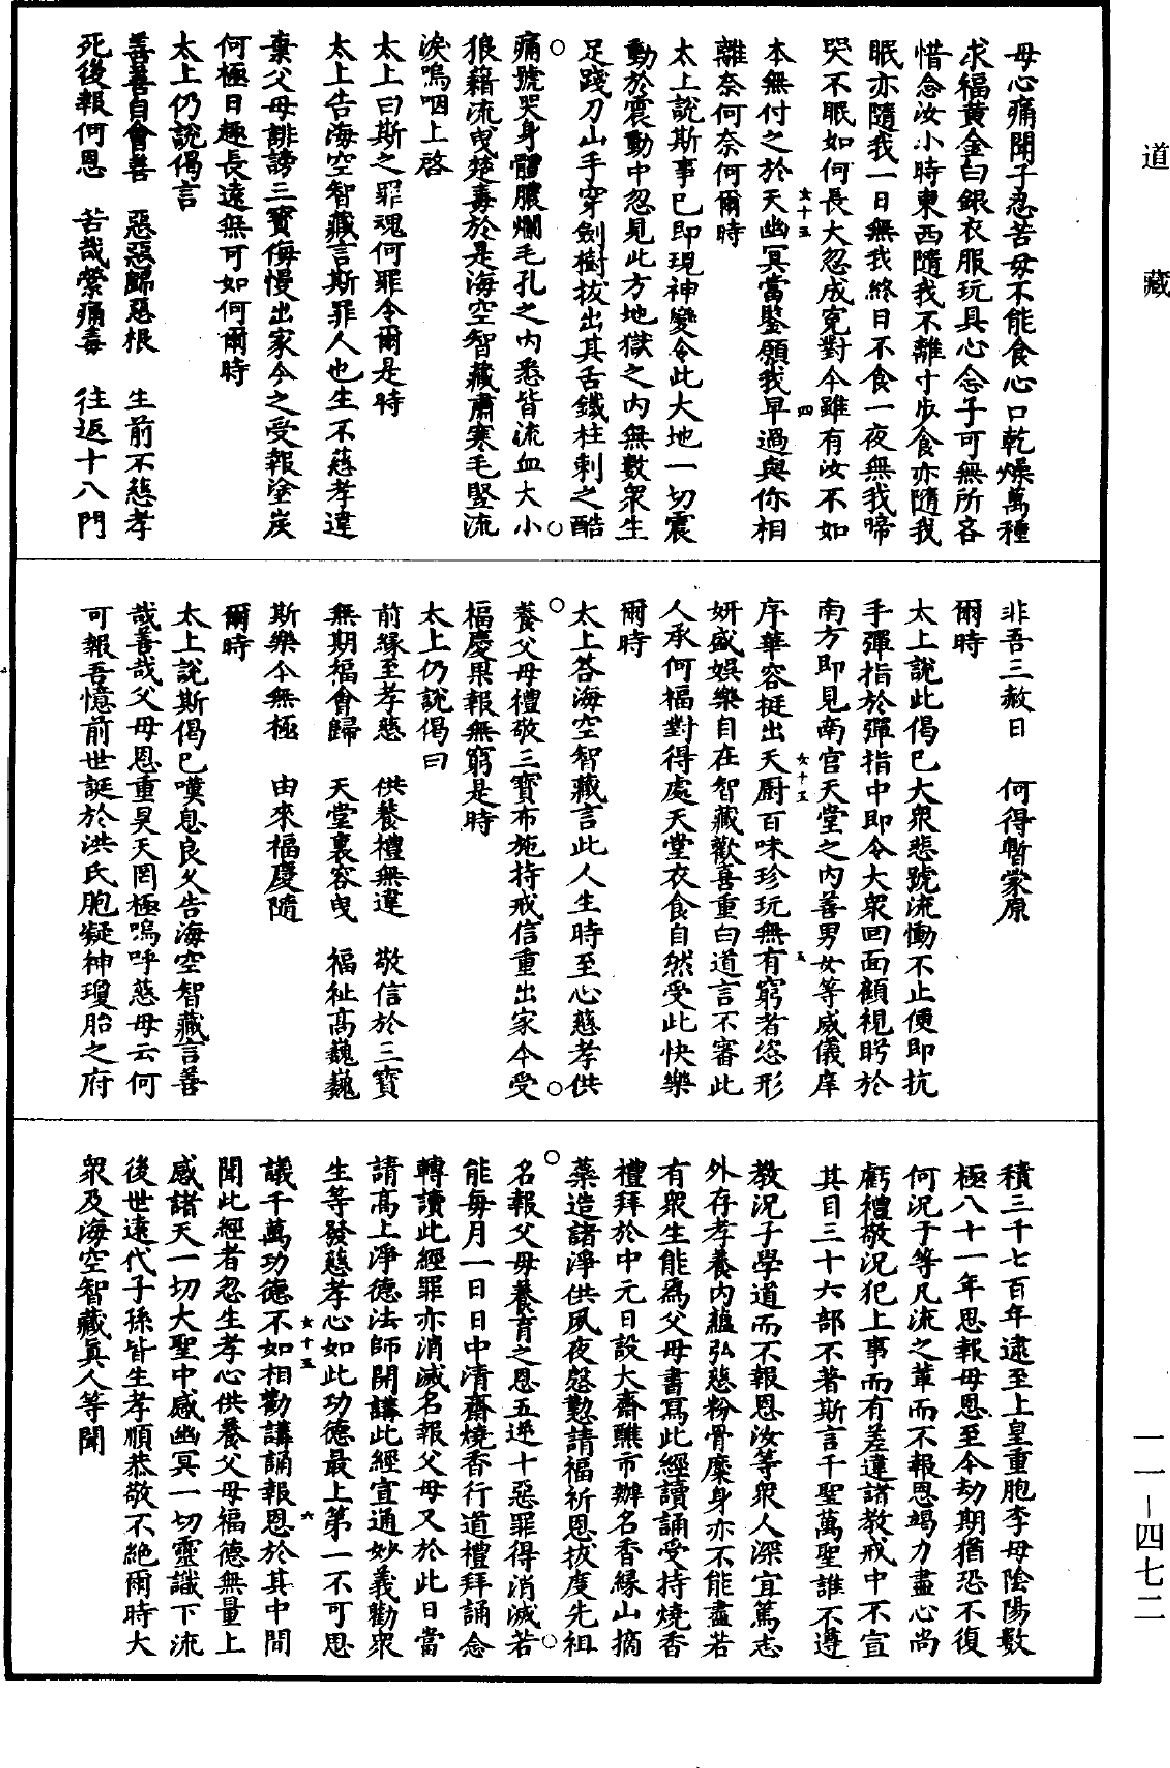 道藏
一一－四七二
母心痛聞子忍苦母不能食心口乾燥萬種
求福黃金白銀衣服玩具心念子可無所吝
惜念汝小時東西隨我不離寸步食亦隨我
眠亦隨我一日無我終日不食一夜無我啼
哭不眠如何長大忽成寃對今雖有汝不如
女十五
四
本無付之於天幽冥當鑒願我早過與你相
離奈何奈何爾時
太上說斯事已即現神變令此大地一切震
動於震動中忽見此方地獄之內無數眾生
足踐刀山手穿劍樹拔出其舌鐵柱刺之酷
痛號哭身體膿爛毛孔之內悉皆流血大小
狼藉流曳楚毒於是海空智藏肅寒毛竪流
淚嗚咽上啓
太上曰斯之罪魂何罪令爾是時
太上告海空智藏言斯罪人也生不慈孝違
棄父母誹謗三寶侮慢出家今之受報塗炭
何極日趣長遠無可如何爾時
太上仍說偈言
善善自會善　惡惡歸惡根　生前不慈孝
死後報何恩　苦哉縈痛毒　往返十八門
非吾三赦日　何得暫蒙原
爾時
太上說此偈已大衆悲號流慟不止便即抗
手彈指於彈指中即令大衆回面顧視眄於
南方即見南宮天堂之內善男女等威儀庠
女十五
五
序華容挺出天厨百味珍玩無有窮者恣形
妍盛娛樂自在智藏歡喜重白道言不審此
人承何福對得處天堂衣食自然受此快樂
爾時
太上答海空智藏言此人生時至心慈孝供
養父母禮敬三寶布施持戒信重出家今受
福慶果報無窮是時
太上仍說偈曰
前緣至孝慈　供養禮無違　敬信於三寶
無期福會歸　天堂裏容曳　福祉高巍巍
斯樂今無極　由來福慶隨
爾時
太上說斯偈已嘆息良久告海空智藏言善
哉善哉父母恩重昊天罔極嗚呼慈母云何
可報吾憶前世誕於洪氏胞凝神瓊胎之府
積三千七百年逮至上皇重胞李母陰陽數
極八十一年思報母恩至今劫期猶恐不復
何況于等凡流之軰而不報恩竭力盡心尚
虧禮敬況犯上事而有差違諸教戒中不宣
其目三十六部不著斯言千聖萬聖誰不遵
教況子學道而不報恩汝等衆人深宜篤志
外存孝養內蘊弘慈粉骨糜身亦不能盡若
有衆生能爲父母書寫此經讀誦受持燒香
禮拜於中元日設大齋醮市辦名香緣山摘
藥造諸淨供夙夜慇懃請福祈恩拔度先祖
名報父母養育之恩五逆十惡罪得消滅若
能每月一日日中清齋燒香行道禮拜誦念
轉讀此經罪亦消滅名報父母又於此日當
請高上淨德法師開講此經宣通妙義勸衆
生等發慈孝心如此功德最上第一不可思
女十五
六
議千萬功德不如相勸講誦報恩於其中間
聞此經者忽生孝心供養父母福德無量上
感諸天一切大聖中感幽冥一切靈識下流
後世遠代子孫皆生孝順恭敬不絕爾時大
衆及海空智藏真人等聞